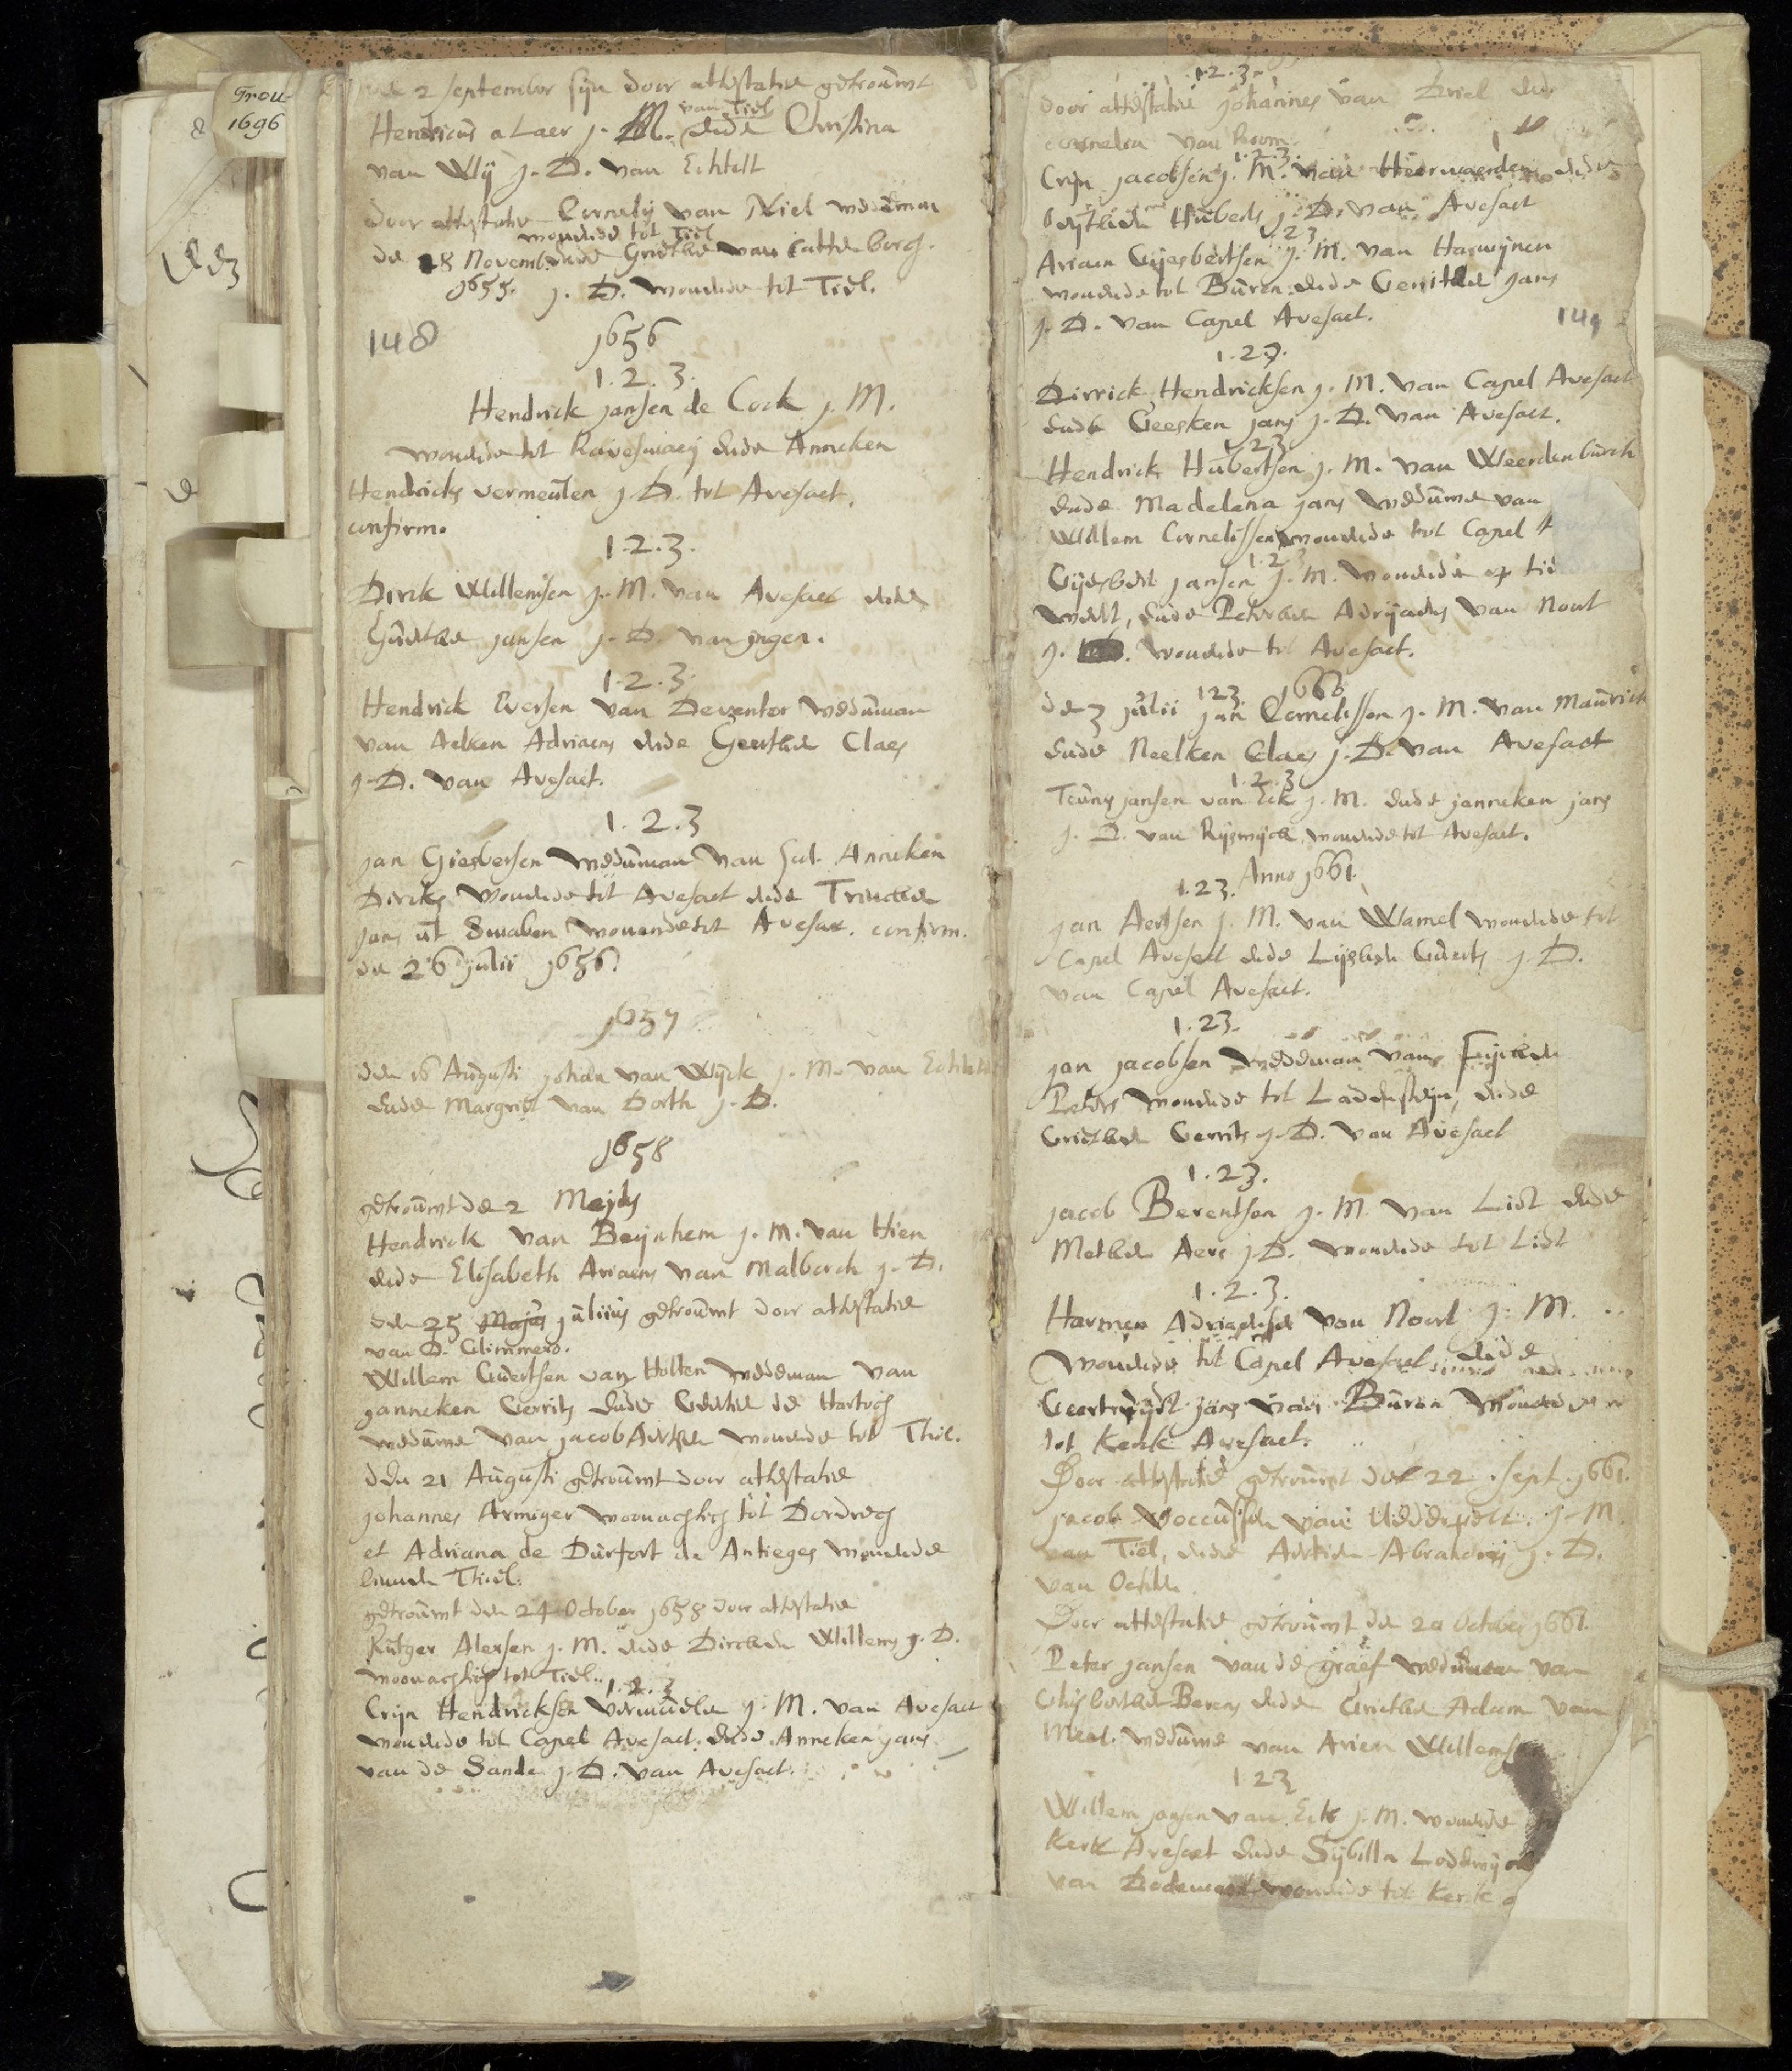 Trou-
1696
de 2 september sijn door attestatie getrouwt
van Tiel
Hendricus a Laer j. M. ende Christina
van Wij j. D. van Echtelt
door attestatie Cornelij van Niel weduman
wonende tot Tiel
de 28 Novemb. ende Grietke van Cattenborg.
1655. j. D. wonende tot Tiel.
148
1656
1. 2. 3.
Hendrick jansen de Cock j. M.
wonende tot Ravesmaeij ende Anneken
Hendricks vermeulen j. D. tot Avesaet.
confirm.
1.2.3.
Dirck Willemsen j. M. van Avesaet ende
jansen j. D. van jngen.
1.2.3.
Hendrick Eversen van Deventer weduman
van Aelken Adriaens ende Geertke Claes
j. D. van Avesaet.
1. 2. 3
jan Giesbersen weduman van sal. Anneken
Dircks wonende tot Avesaet ende
jans ut Swaben wonende tot Avesaet. confirm.
de 26 julii 1656.
1657
den 16 Augusti johan van Wijck j. M. van Echtelt
ende Margriet van Dorth j. D.
1658
getrouwt de 2 Meijes
Hendrick van Beijnhem j. M. van Hien
ende Elisabeth Ariaens van Malborch j. D.
den 25 Majus juliius getrouwt door attestatie
van D. Glimmero.
Willem Geertsen van Holten wedeman van
janneken Gerrits ende Geertie de Hartoch
weduwe van jacob Aertsen wonende tot Thiel.
den 21 Augusti getrouwt door attestatie
johannes Armiger woonachtich tot Dordrech
et Adriana de Durfort de Antieges wonende
binnen Thiel.
getrouwt den 24 October 1658 door attestatie
Rutger Alersen j. M. ende Dircken Willems j. D.
woonachtich tot Tiel.
1.2.3
Crijn Hendricksen vermeulen j. M. van Avesaet
wonende tot Capel Avesaet. ende Anneken jans
van de Sande j. D. van Avesaet.
1.2.3.
door attestatie johannes van Driel ende
cornelia van
1.2.3.
Crijn jacobsen j. M. van Heerwaerden ende
Huberts j. D. van Avesaet
1 2 3
Ariaen Gijesbertsen j. M. van Harwijnen
wonende tot Buren ende Gerritke jans
j. D. van Capel Avesaet.
149
1.23.
Dirrick Hendricksen j. M. van Capel Avesaet
ende Geesken jans j. D. van Avesaet.
1 23
Hendrick Hubertsen j. M. van Weerdenburch
ende Madelena jans weduwe van
Willem Cornelissen wonende tot Capel
1.2 3
Gijesbert jansen j. M. wonende op
ende Peterken Adrijaens van Noort
j. wonende tot Avesaet.
123 1660
de 3 julii jan Cornelissen j. M. van Maurick
ende Neelken Claes j. D. van Avesaet
1.2.3
Teunis jansen van Eck j. M. ende janneken jans
j. D. van Rijswijck wonende tot Avesaet.
Anno 1661.
1.23.
jan Aertsen j. M. van Wamel wonende tot
Capel Avesaet ende Lijsbeth Geerts j. D.
van Capel Avesaet.
1.23.
jan jacobsen wedeman van Fijcken
Peters wonende tot ende
Grietken Gerrits j. D. van Avesaet
1.23.
jacob Berentsen j. M. van List ende
Metken Aers j D. wonende tot List
1.2.3.
Harmen van Noort j. M.
wonende tot Capel Avesaet ende
jans van Buren wonende
tot Kerck Avesaet.
Door attestatie getrouwt den 22 Sept. 1661.
jacob van j. M.
van Tiel, ende Aertien Abrahams j. D.
van Ochten
Door attestatie getrouwt de 20 October 1661.
Peter jansen van de graef weduman van
Ghijsbertke Berens ende Grietke Adam van
weduwe van Arien Willemse
1 23
Willem jansen van Eck j. M. wonende
Kerk Avesaet ende Sijbilla Lodewijcks
van Dodewaert wonende tot Kerck